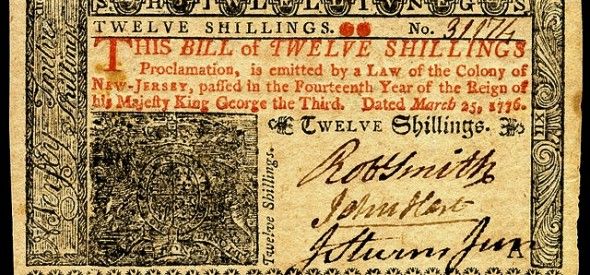 TWELVE SHILLINGS. No. 31174
THIS BILL of TWELVE SHILLINGS
Proclamation, is emitted by a LAW of the COLONY of
NEW-JERSEY, passed in the Fourteenth Year of the Reign of
his Majesty King George the Third. Dated March 25, 1776.
TWELVE Shillings.
RobSmith
John Hart
J Stevens Jun
A
Twelve Shillings.
XII
Twelve